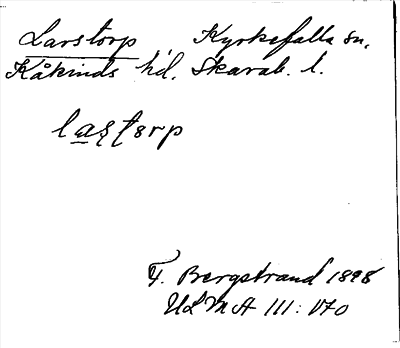 Larstorp Kyrkefalla sn.
Kåkinds hd. Skarab. l.
laʂʈorp
F. Bergstrand 1898
ULMA 111:170